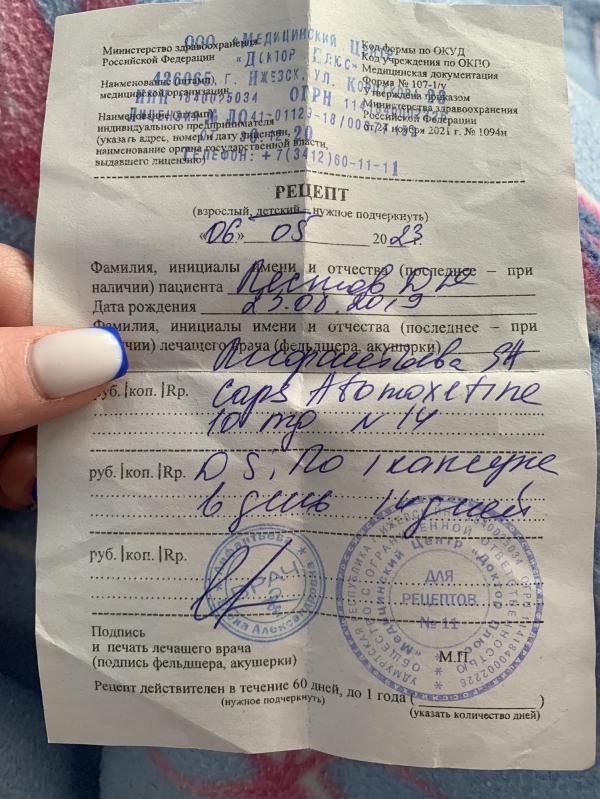 ООО «МЕДИЦИНСКИЙ ЦЕНТР
Министерство здравоохранения
Российской Федерации
«ДОКТОР ПЛЮС»
426065, г. ИЖЕВСК, УЛ.
Наименование (штамп)
медицинской организации
ИНН 1840025034 ОГРН
Наименование (штамп)
индивидуального предпринимателя
(указать адрес, номер и дату лицензии,
наименование органа государственной власти,
выдавшего лицензию)
ТЕЛЕФОН: +7(3412)60-11-11
Код формы по ОКУД
Код учреждения по ОКПО
Медицинская документация
Форма № 107-1/у
Утверждена приказом
Министерства здравоохранения
Российской Федерации
от 24 ноября 2021 г. № 1094н
РЕЦЕПТ
(взрослый, детский – нужное подчеркнуть)
«06» 05 2023г.
Фамилия, инициалы имени и отчества (последнее – при
наличии) пациента
Дата рождения 23.08.2019
Фамилия, инициалы имени и отчества (последнее – при
наличии) лечащего врача (фельдшера, акушерки)
руб. |коп. |Rp. Caps Atomoxetine
10 mg N 14
руб. |коп. |Rp. D S. По 1 капсуле
в день 14 дней
руб. |коп. |Rp.
ВРАЧ
ДЛЯ
РЕЦЕПТОВ
№ 11
Медицинский Центр "Доктор Плюс"
Подпись
и печать лечащего врача
(подпись фельдшера, акушерки)
М.П.
Рецепт действителен в течение 60 дней, до 1 года (
)
(нужное подчеркнуть)
(указать количество дней)